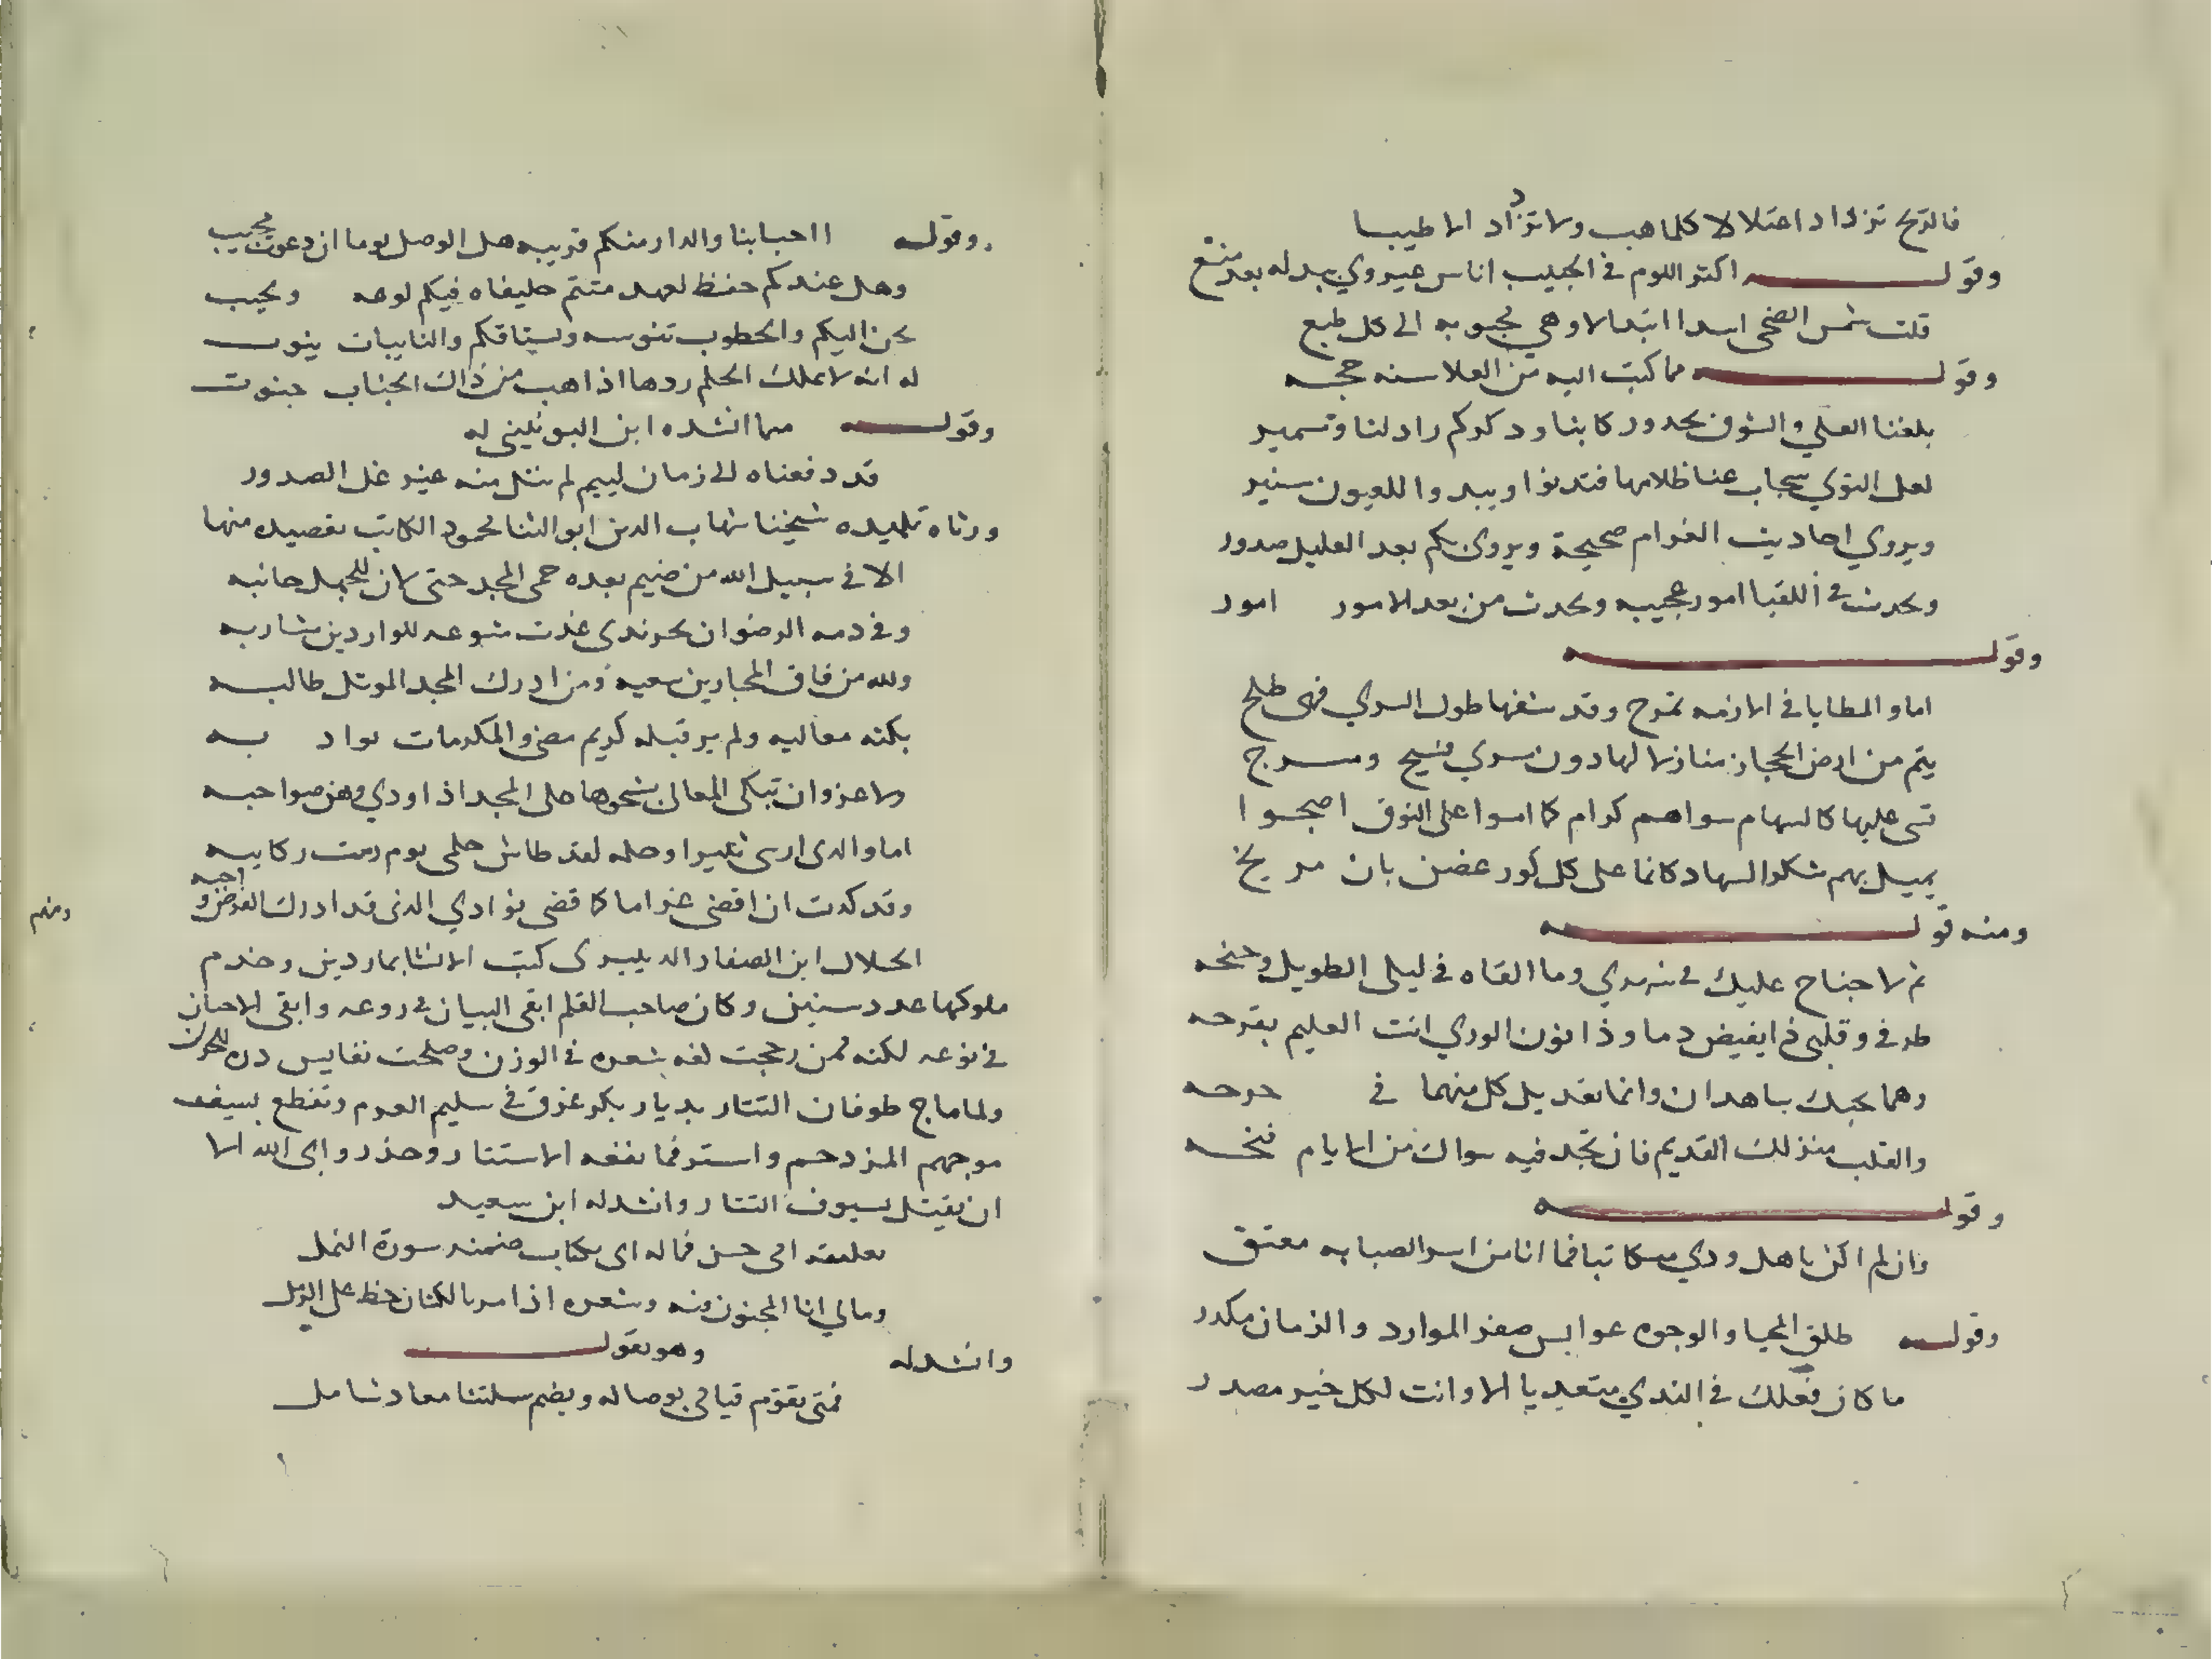 فالريح تزداد اعتلالا كلما هب ولا تزداد الا طيبا
وقوله اكثر اللوم في الحبيب اناس عيروني ببدله بعد منع
قلت شمس الضحى اسدا ابتدالا وهي محبوبه الى كل طبع
وقوله مما كتب اليه من العلا سنه حجه
بلغنا العلى والشوق يحدو ركابنا وذكركم زاد لنا وسمير
لعل النوى ينجاب عنا ظلامها فتدنوا ويبدوا للعيون سنير
ويروي احاديث الغرام صحيحة ويروى بكم بعد الغليل صدور
ويحدث في اللقيا امور عجيبه ويحدث من بعد الامور امور
وقوله
اما والمطايا في الازمه تمرح وقد شفها طول السري فهى طلح
يتم من ارض الحجاز منازلا لها دون مسري فسيح ومسرح
تى عليها كالسهام سواهم كرام كما امسوا على النوق اصبحوا
يميل بهم سكر السهاد كانما على كل كور غصن بان مريح
ومنه قوله
نم لا جناح عليك في سهري وما القاه في ليلى الطويل وجنحه
طرفي وقلبى ذا يفيض دما وذا دون الورى انت العليم بقرحه
وهما بحبك شاهدان وانما تعديل كل منهما في جرحه
والقلب منزلك القديم فان تجد فيه سواك من الايام فنحه
وقوله
وان لم اكن باهل ودي مكاتبا فما انا من اسر الصبابه معتق
وقوله طلق المحيا والوجوه عوابس صفو الموارد والزمان مكدر
ما كان فعلك في الندي متعديا الا وانت لكل خير مصدر
وقوله ااحبابنا والدار منكم قريبه هل الوصل يوما ان دعوت مجيب
وهل عندكم حفظ لعهد متيم حليفاه فيكم لوعه ونحيب
يحن اليكم والخطوب تنوشه ويشتاقكم والنايبات ينوب
له انه لا يملك الحلم ردها اذا هب من ذاك الجناب جنوب
وقوله مما انشده ابن البونيني له
قد دفعناه الى زمان لييم لم ننل منه غير غل الصدور
ورثاه تلميذه شيخنا شهاب الدين ابو الثنا محمود الكاتب بقصيده منها
الا في سبيل الله من ضيم بعده حمى المجد حتى لان للجهل جانبه
وفي ذمه الرضوان بحر ندى غدت مشرعه للواردين مشاربه
ولله من فاق المجارين سعيه ومن ادرك المجد الموثل طالبه
بكته معاليه ولم ير قبله كريم مضى والمكرمات نوادبه
ولا غروان تبكى المعالى بشجوها على المجد اذ اودي وهن صواحبه
اما والدى ارسى ثبيرا وحله لقد طاش حلمى يوم زمت ركايبه
وقد كدت ان اقضى غراما كما قضى فوادي الذى قد ادرك الفرض واجبه
الجلال ابن الصفار الدنيسرى كتب الانشا بماردين وخدم
ملوكها عدد سنين وكان صاحب القلم ابقى البيان في روعه وابقى الاحسان
في نوعه لكنه ممن رجحت لفه شعره في الوزن وصلحت نفايس دره للخزن
ولما ماج طوفان التتار بديار بكر غرق في سليم العرم وتقطع بسيف
موجهم المزدحم واستتر فما نفعه الاستتار وحذر وابى الله الا
ان يقتل بسيوف التتار وانشد له ابن سعيد
تعلمته امى حسن فماله اى بكتاب ضمنه سورة النمل
ومالي انا المجنون منه وشعره اذا مر بالكثبان خط على الرمل
وانشد له وهو يقول
فمتى يقوم قيامتى بوصاله ويضم سلتنا معاد شامل
ومنهم